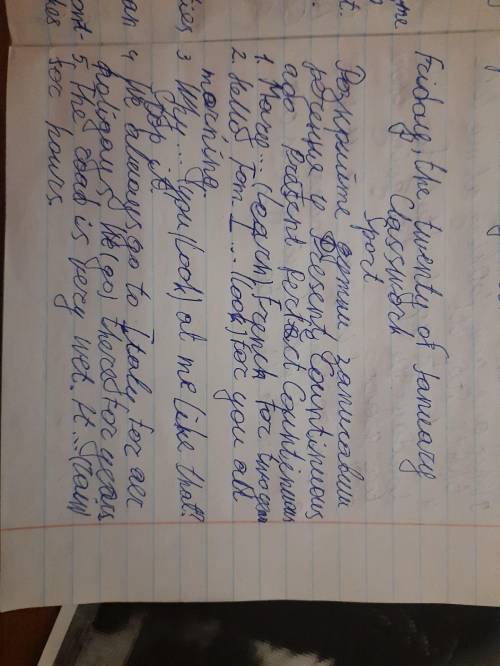 Friday, the twenty of January
Classwork
Sport
Розкрийте дужки записавши
речення у Present Continuous
або Present Perfect Continuous
1. Marco... (learn) French for
2. Hello Tom I ... (look) for you all
morning.
3 Why... you (look) at me like that?
Stop it!
4 We always go to Italy for our
holidays. We (go) there for years
5. The road is very wet. It ... (rain)
for hours.